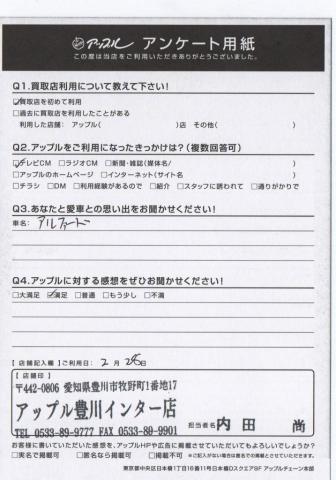 アップル アンケート用紙
この度は当店をご利用いただきありがとうございました。
Q1.買取店利用について教えて下さい!
☑買取店を初めて利用
□過去に買取店を利用したことがある
利用した店舗: アップル( )店 その他( )
Q2.アップルをご利用になったきっかけは?(複数回答可)
☑テレビCM □ラジオCM □新聞・雑誌(媒体名/ )
□アップルのホームページ □インターネット(サイト名 )
□チラシ □DM □利用経験があるので □紹介 □スタッフに誘われて □通りがかりで
Q3.あなたと愛車との思い出をお聞かせください!
車名: アルファード
Q4.アップルに対する感想をぜひお聞かせください!
□大満足 ☑満足 □普通 □もう少し □不満
【店舗記入欄】ご利用日: 2月26日
【店舗印】
〒442-0806 愛知県豊川市牧野町1番地17
アップル豊川インター店
TEL 0533-89-9777 FAX 0533-89-9901
担当者名 内田 尚
お客様に書いていただいた感想を、アップルHPや広告に掲載させていただいてもよろしいでしょうか?
□実名で掲載可 □匿名なら掲載可 □掲載不可 ※ご記入がない場合は匿名での掲載とさせていただきます。
東京都中央区日本橋1丁目16番11号日本橋Dスクエア8F アップルチェーン本部